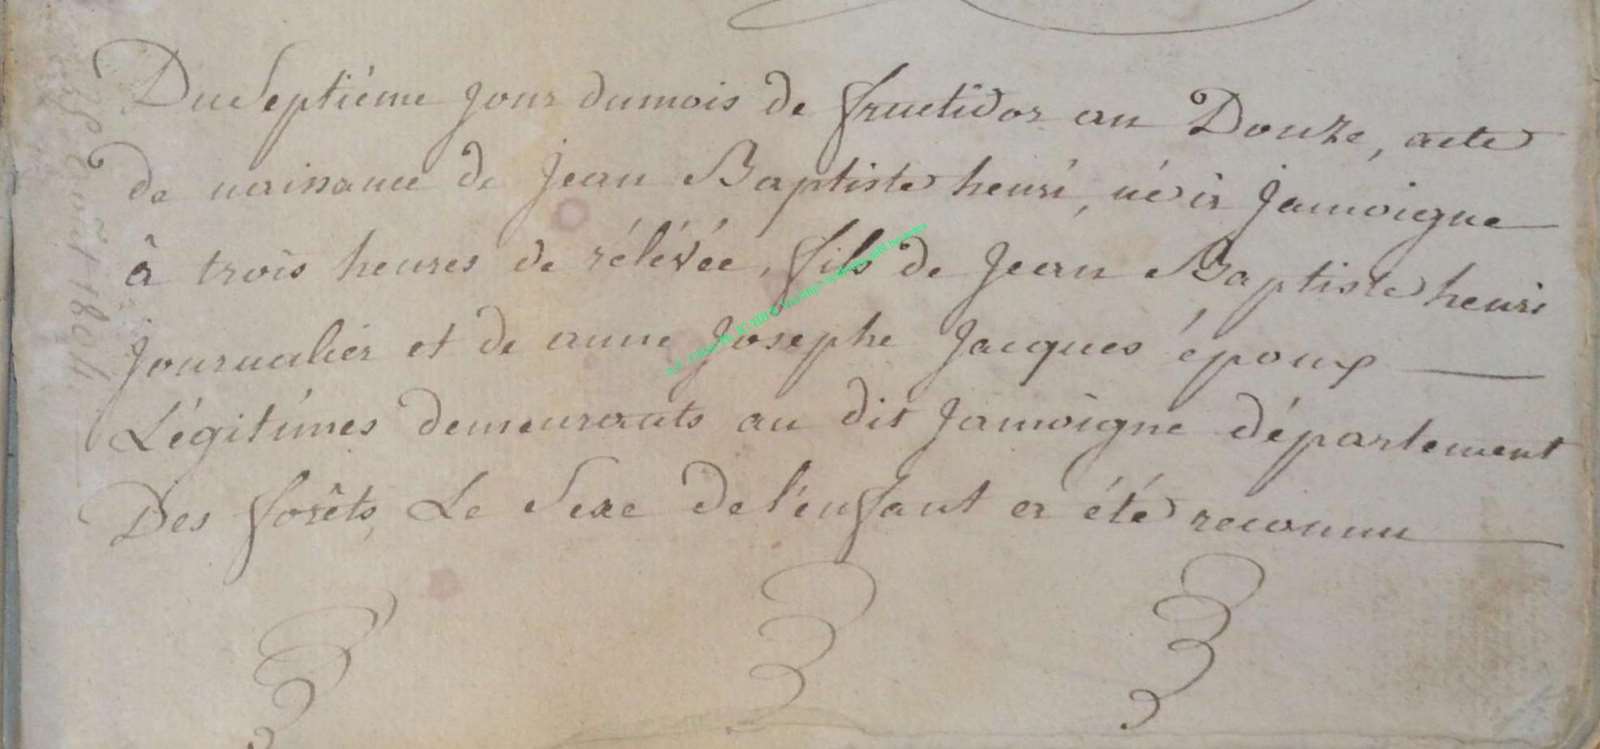 Du Septiéme jour du mois de fructidor an Douze, acte
de naissance de jean Baptiste henri, né à jamoigne
à trois heures de rélévée, fils de jean Baptiste henri
journalier et de anne josephe jacques époux
Légitimes demeurants au dit jamoigne département
Des forêts, Le Sexe de l'enfant a été reconnu